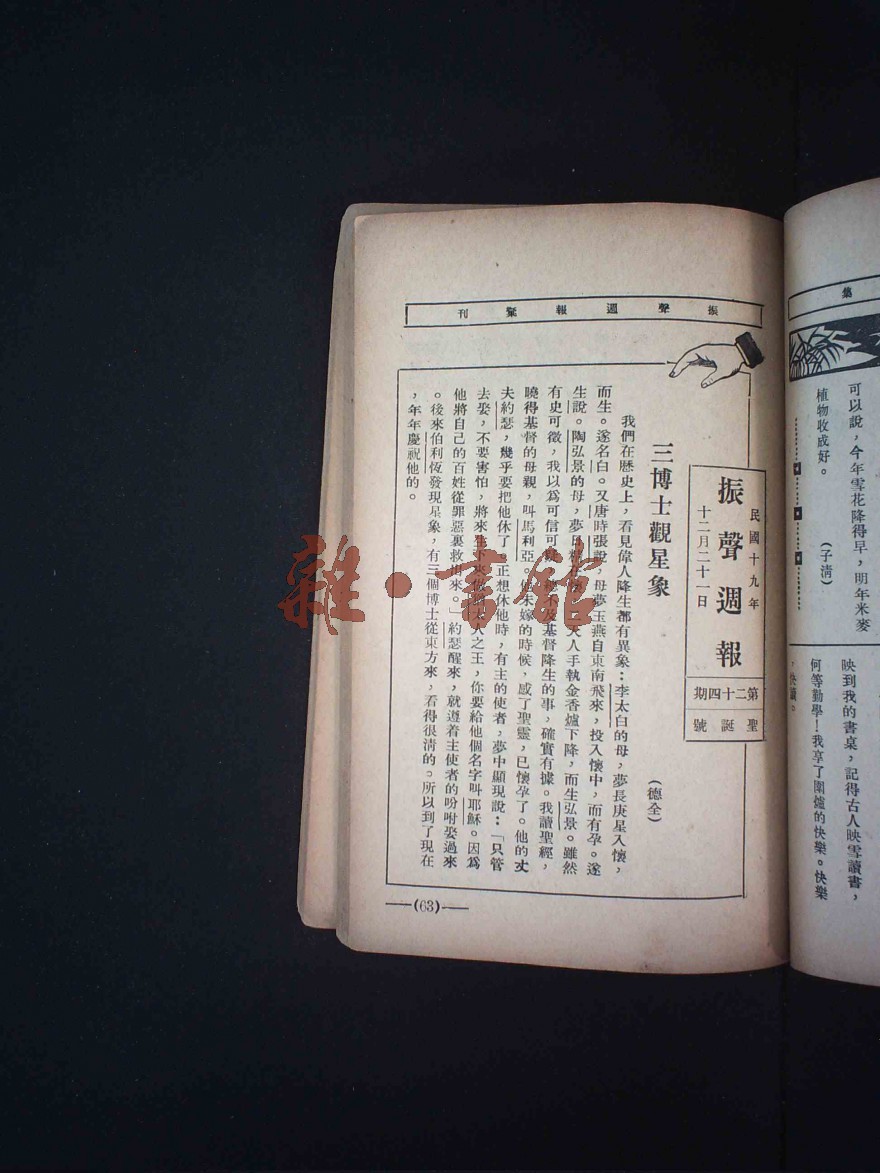 可以說，今年雪花降得早，明年米麥
植物收成好。
(子清)
映到我的書桌，記得古人映雪讀書，
何等勤學！我享了圍爐的快樂。快樂
振聲週報彙刊
民國十九年
十二月二十一日
振聲週報
第二十四期
聖誕號
三博士觀星象
(德全)
我們在歷史上，看見偉人降生都有異象：李太白的母，夢長庚星入懷，
而生。遂名白。又唐時張說，母夢玉燕自東南飛來，投入懷中，而有孕。遂
生說。陶弘景的母，夢日精在懷，二天人手執金香爐下降，而生弘景。雖然
有史可徵，我以為可信可疑，總不及基督降生的事，確實有據。我讀聖經，
曉得基督的母親，叫馬利亞。他未嫁的時候，感了聖靈，已懷孕了。他的丈
夫約瑟，幾乎要把他休了。正想休他時，有主的使者，夢中顯現說：「只管
去娶，不要害怕，將來生下來做猶太人之王，你要給他個名字叫耶穌。因為
他將自己的百姓從罪惡裏救出來。」約瑟醒來，就遵着主使者的吩咐娶過來
。後來伯利恆發現星象，有三個博士從東方來，看得很清的。所以到了現在
，年年慶祝他的。
(63)
雜·書館